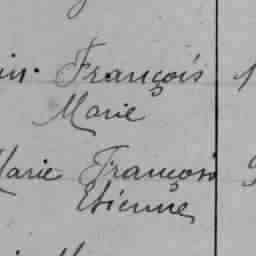 François
Marie
Marie François
Etienne